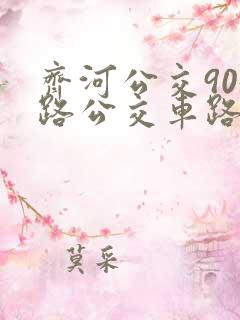 齊河公交90
路公交車路
莫采